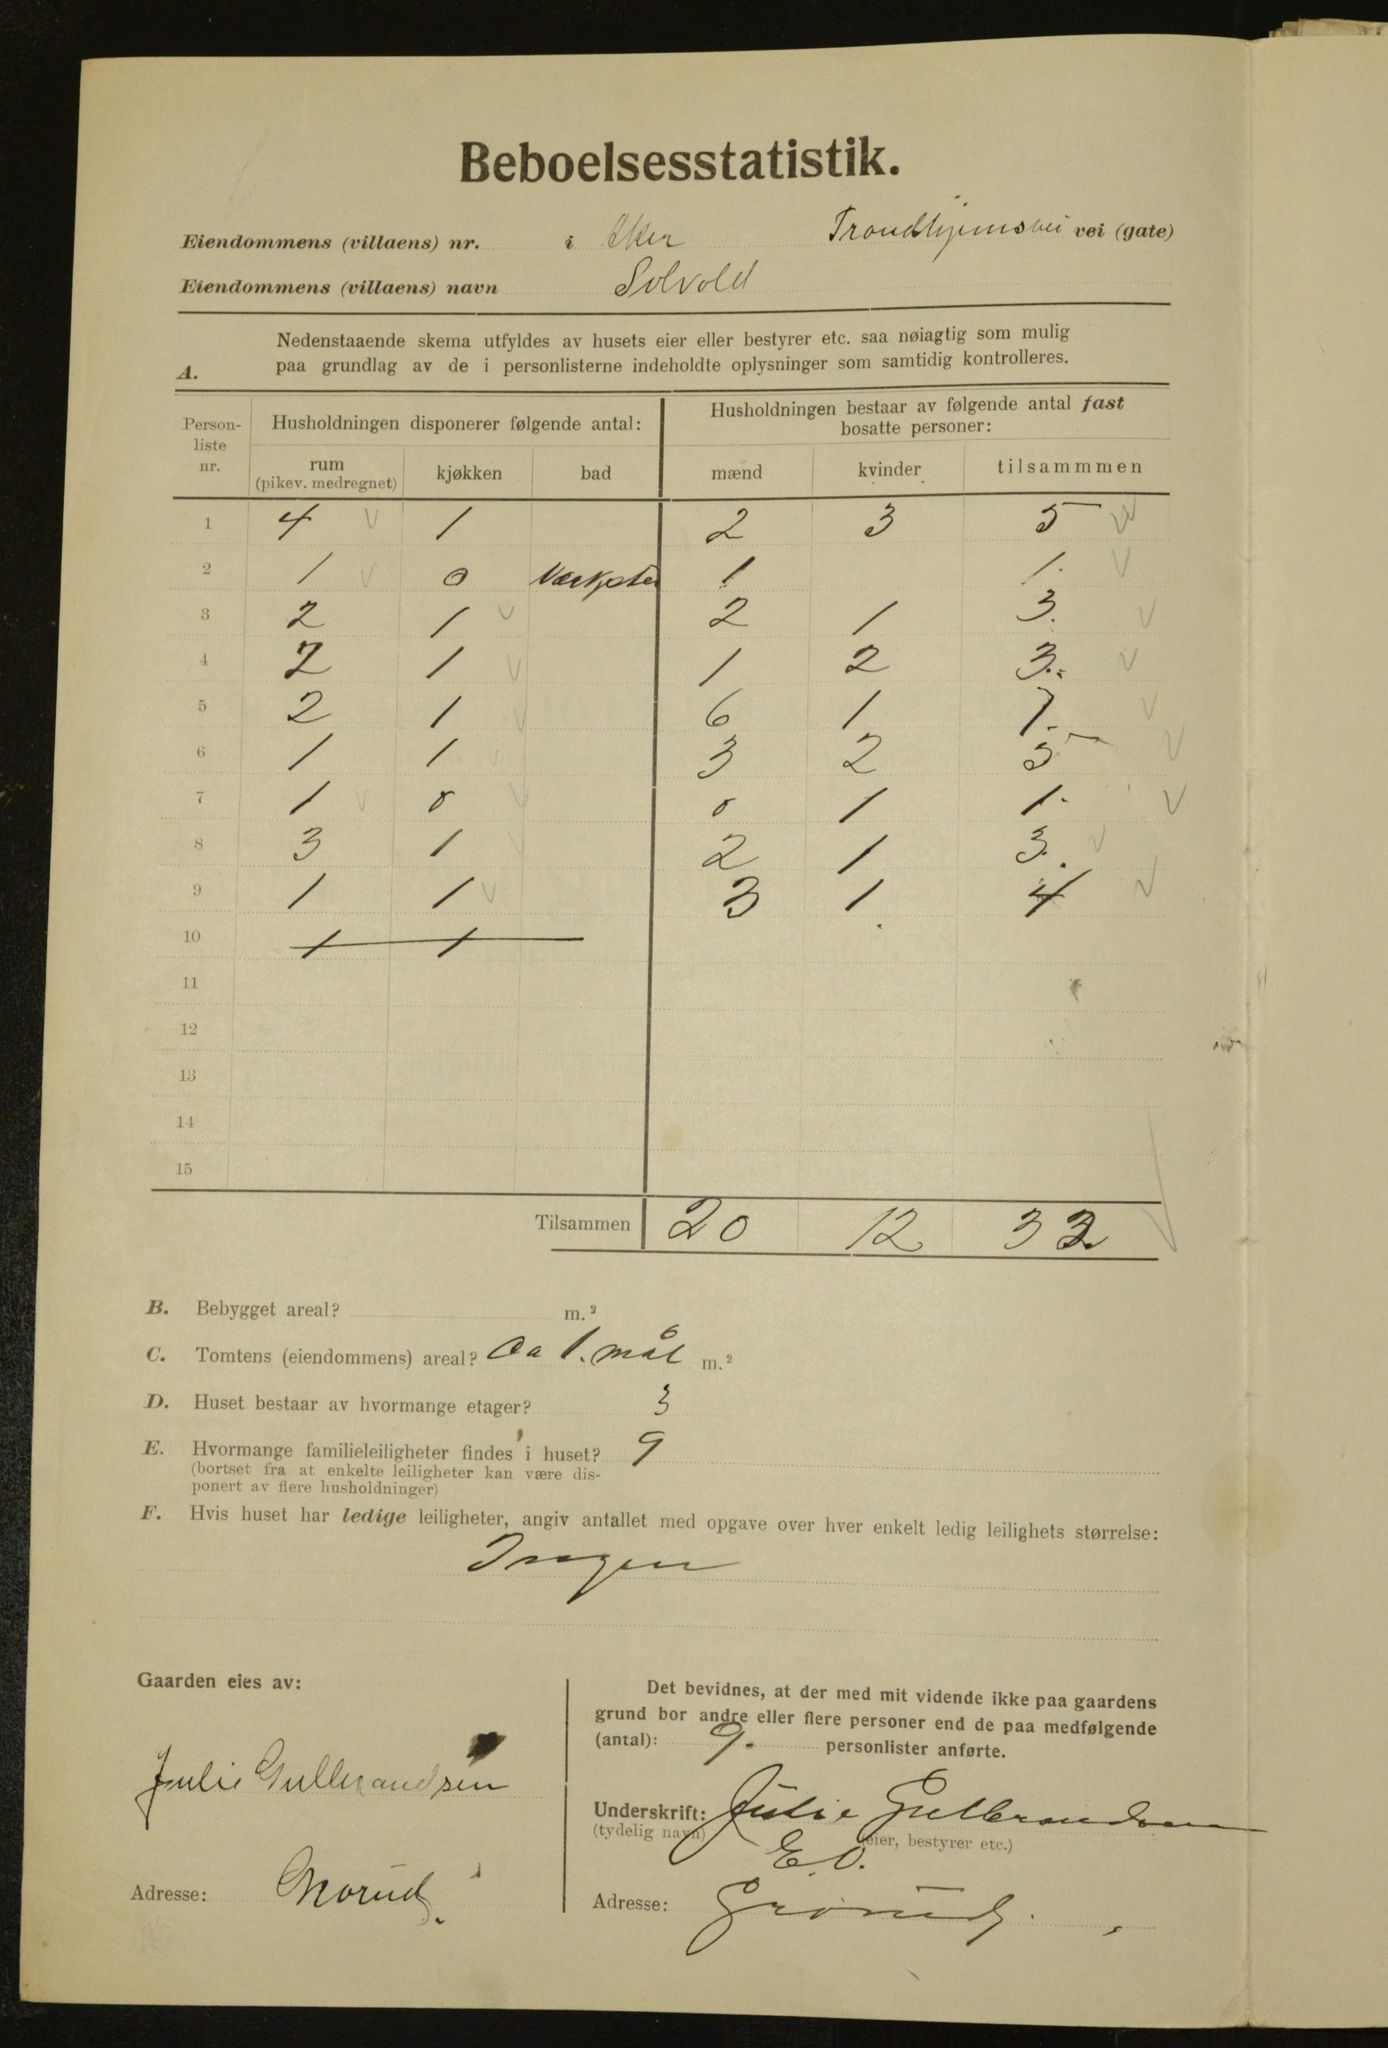 Beboelsesstatistik.
Eiendommens (villaens) nr. i Aker Trondhjemsvei vei (gate)
Eiendommens (villaens) navn Solvold
A. Nedenstaaende skema utfyldes av husets eier eller bestyrer etc. saa nøiagtig som mulig
paa grundlag av de i personlisterne indeholdte oplysninger som samtidig kontrolleres.
Person-liste nr. Husholdningen disponerer følgende antal: Husholdningen bestaar av følgende antal fast bosatte personer:
rum (pikev. medregnet) kjøkken bad mænd kvinder tilsammmen
1 4 1 2 3 5
2 1 0 Værksted 1 1.
3 2 1 2 1 3.
4 2 1 1 2 3.
5 2 1 6 1 7.
6 1 1 3 2 5
7 1 0 0 1 1.
8 3 1 2 1 3.
9 1 1 3 1. 4
10 1 1
11
12
13
14
15
Tilsammen 20 12 32
B. Bebygget areal? m.²
C. Tomtens (eiendommens) areal? Ca 1. mål m.²
D. Huset bestaar av hvormange etager? 3
E. Hvormange familieleiligheter findes i huset? 9
(bortset fra at enkelte leiligheter kan være dis-
ponert av flere husholdninger)
F. Hvis huset har ledige leiligheter, angiv antallet med opgave over hver enkelt ledig leilighets størrelse:
Ingen
Gaarden eies av:
Julie Gulbrandsen
Adresse: Grorud.
Det bevidnes, at der med mit vidende ikke paa gaardens
grund bor andre eller flere personer end de paa medfølgende
(antal): 9. personlister anførte.
Underskrift: Julie Gulbrandsen
(tydelig navn) (eier, bestyrer etc.)
Adresse: Grorud.